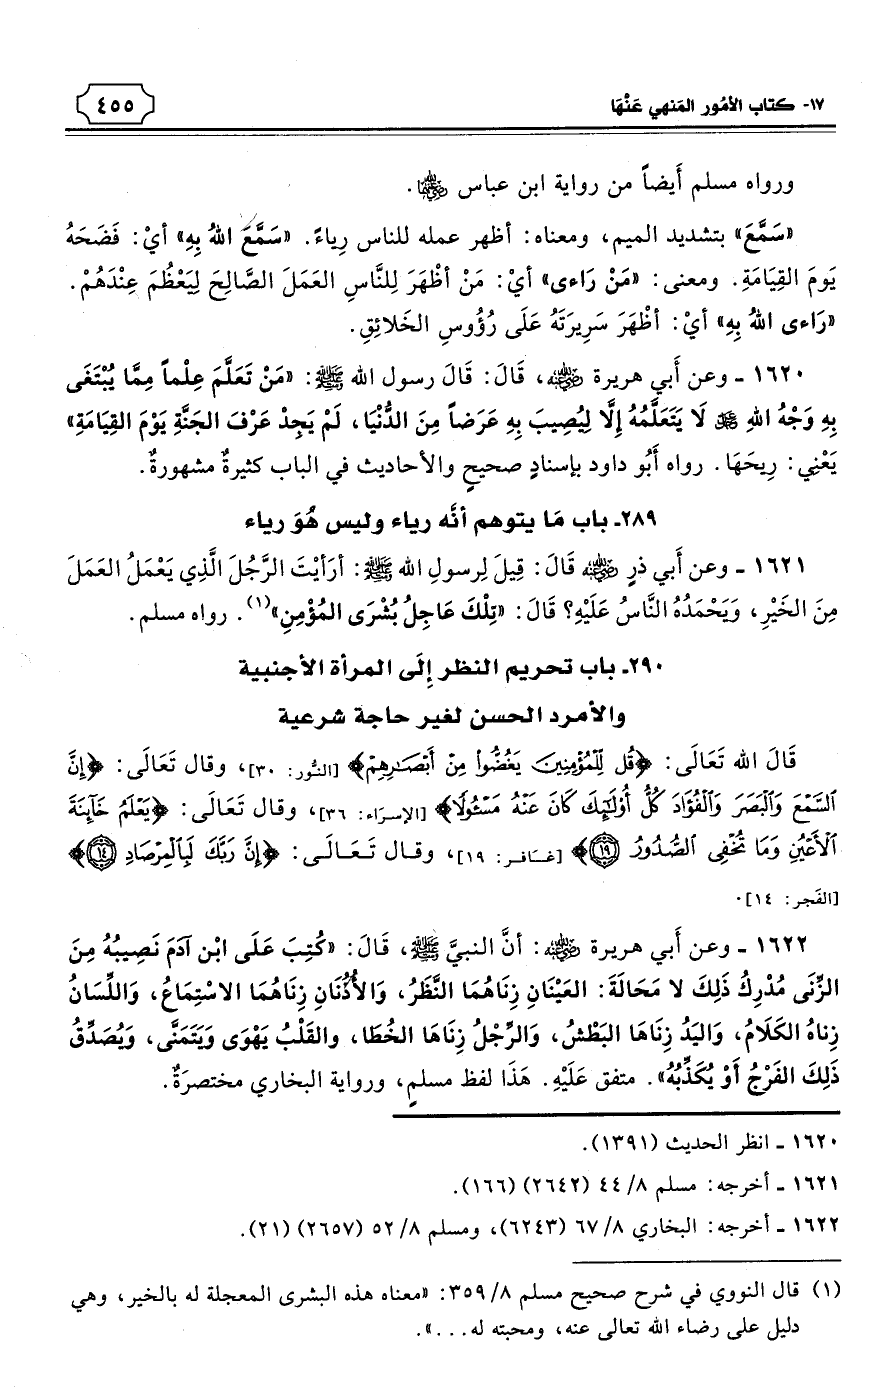 ١٧- كتاب الأمُور المَنهي عَنْهَا
٤٥٥
ورواه مسلم أَيضاً من رواية ابن عباس ﷺ.
«سَمَّعَ» بتشديد الميم، ومعناه: أظهر عمله للناس رِياءً. «سَمَّعَ اللهُ بِهِ» أيْ: فَضَحَهُ
يَومَ القِيَامَةِ. ومعنى: «مَنْ رَاءى» أيْ: مَنْ أَظْهَرَ لِلنَّاسِ العَمَلَ الصَّالِحَ لِيَعْظُمَ عِنْدَهُمْ.
«رَاءى اللهُ بِهِ» أيْ: أظْهَرَ سَرِيرَتَهُ عَلَى رُؤُوسِ الخَلائِقِ.
١٦٢٠ ـ وعن أَبي هريرة رضي الله عنه، قَالَ: قَالَ رسول الله ﷺ: «مَنْ تَعَلَّمَ عِلْماً مِمَّا يُبْتَغَى
بِهِ وَجْهُ اللهِ ﷻ لَا يَتَعَلَّمُهُ إِلَّا لِيُصِيبَ بِهِ عَرَضاً مِنَ الدُّنْيَا، لَمْ يَجِدْ عَرْفَ الجَنَّةِ يَوْمَ القِيَامَةِ»
يَعْنِي: رِيحَهَا. رواه أَبُو داود بإسنادٍ صحيحٍ والأحاديث في الباب كثيرةٌ مشهورةٌ.
٢٨٩ـ باب مَا يتوهم أنَّه رياء وليس هُوَ رياء
١٦٢١ ـ وعن أَبي ذرٍ رضي الله عنه قَالَ: قِيلَ لِرسولِ الله ﷺ: أرَأيْتَ الرَّجُلَ الَّذِي يَعْمَلُ العَمَلَ
مِنَ الخَيْرِ، وَيَحْمَدُهُ النَّاسُ عَلَيْهِ؟ قَالَ: «تِلْكَ عَاجِلُ بُشْرَى المُؤْمِنِ»(١). رواه مسلم.
٢٩٠ـ باب تحريم النظر إلَى المرأة الأجنبية
والأمرد الحسن لغير حاجة شرعية
قَالَ الله تَعَالَى: ﴿قُل لِّلْمُؤْمِنِينَ يَغُضُّوا۟ مِنْ أَبْصَـٰرِهِمْ﴾ [النُّور: ٣٠]، وقال تَعَالَى: ﴿إِنَّ
ٱلسَّمْعَ وَٱلْبَصَرَ وَٱلْفُؤَادَ كُلُّ أُو۟لَـٰٓئِكَ كَانَ عَنْهُ مَسْـُٔولًا﴾ [الإسرَاء: ٣٦]، وقال تَعَالَى: ﴿يَعْلَمُ خَآئِنَةَ
ٱلْأَعْيُنِ وَمَا تُخْفِى ٱلصُّدُورُ ١٩﴾ [غَافر: ١٩]، وقال تَعَالَى: ﴿إِنَّ رَبَّكَ لَبِٱلْمِرْصَادِ ١٤﴾
[الفَجر: ١٤].
١٦٢٢ ـ وعن أَبي هريرة رضي الله عنه: أنَّ النبيَّ ﷺ، قَالَ: «كُتِبَ عَلَى ابْنِ آدَمَ نَصِيبُهُ مِنَ
الزِّنَى مُدْرِكُ ذَلِكَ لا مَحَالَةَ: العَيْنَانِ زِنَاهُمَا النَّظَرُ، وَالأُذُنَانِ زِنَاهُمَا الاسْتِمَاعُ، وَاللِّسَانُ
زِناهُ الكَلَامُ، وَاليَدُ زِنَاهَا البَطْشُ، وَالرِّجْلُ زِنَاهَا الخُطَا، والقَلْبُ يَهْوَى وَيَتَمَنَّى، وَيُصَدِّقُ
ذَلِكَ الفَرْجُ أَوْ يُكَذِّبُهُ». متفق عَلَيْهِ. هَذَا لفظ مسلمٍ، ورواية البخاري مختصرَةٌ.
١٦٢٠ ـ انظر الحديث (١٣٩١).
١٦٢١ ـ أخرجه: مسلم ٨/ ٤٤ (٢٦٤٢) (١٦٦).
١٦٢٢ ـ أخرجه: البخاري ٨/ ٦٧ (٦٢٤٣)، ومسلم ٨/ ٥٢ (٢٦٥٧) (٢١).
(١) قال النووي في شرح صحيح مسلم ٨/ ٣٥٩: «معناه هذه البشرى المعجلة له بالخير، وهي
دليل على رضاء الله تعالى عنه، ومحبته له...».